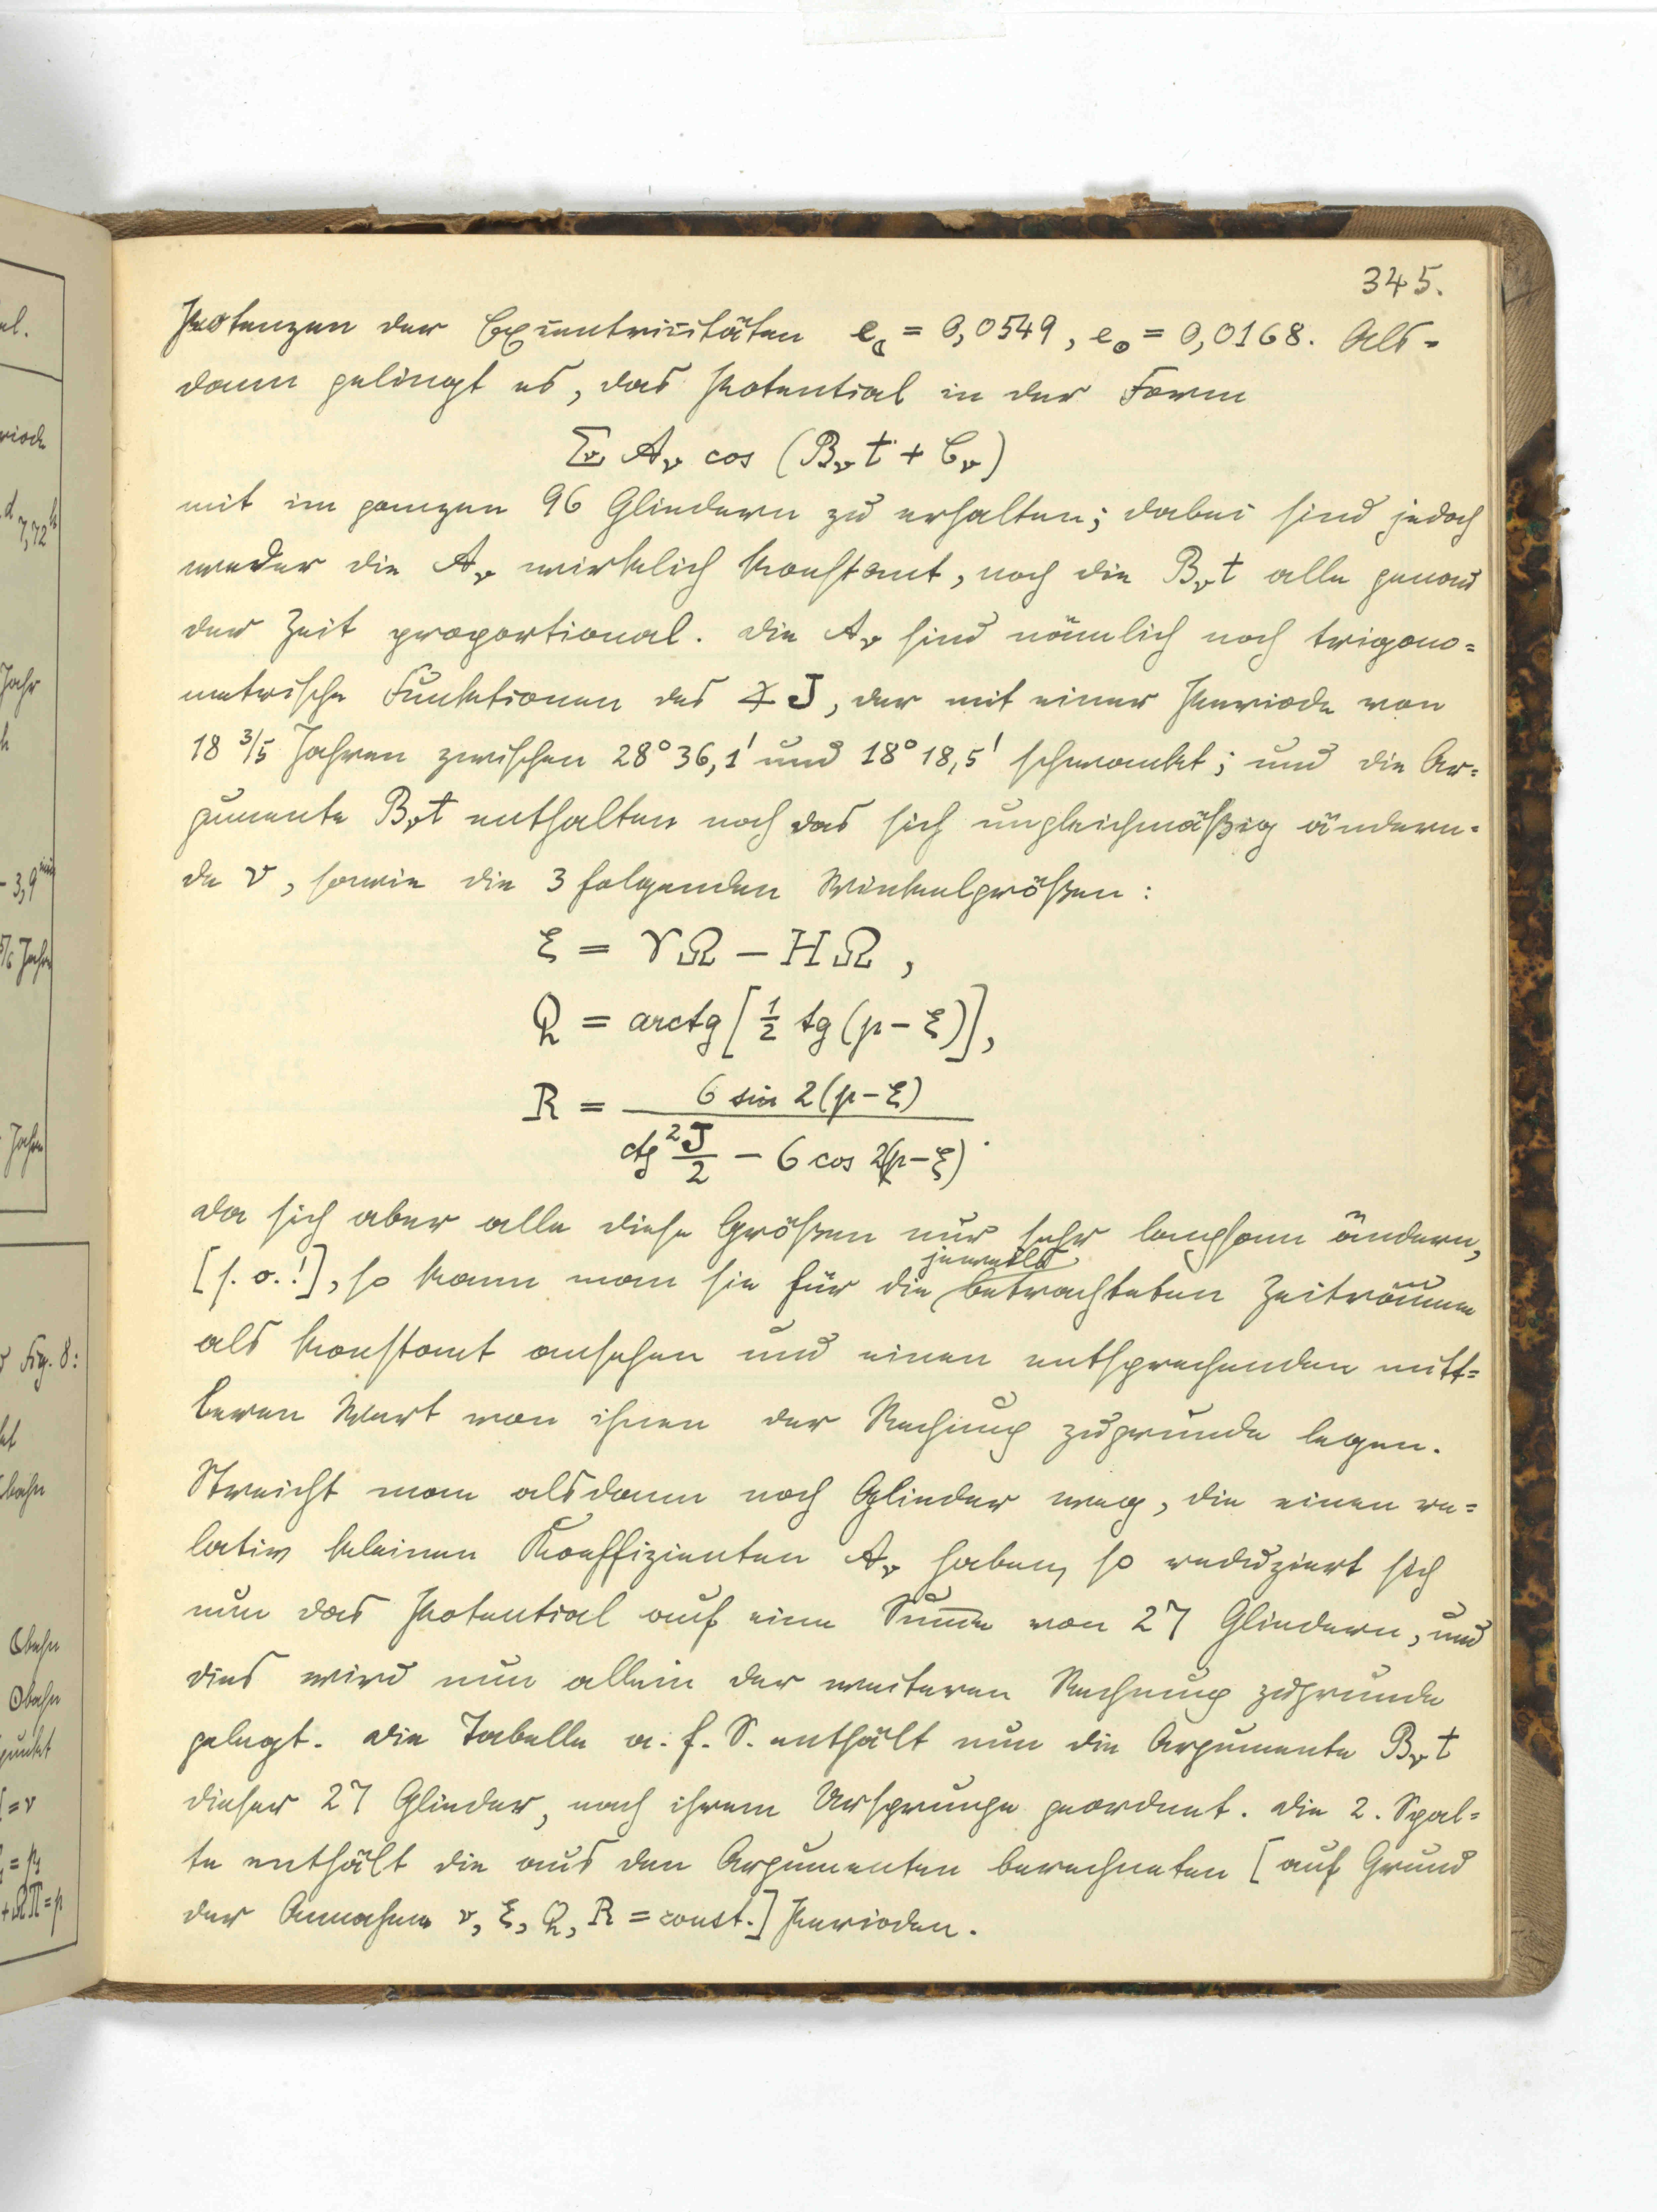 345.
Potenzen der Exzentrizitäten e☾ = 0,0549, e☉ = 0,0168. Als-
dann gelingt es, das Potential in der Form
Σν Aν cos (Bν t + Cν)
mit im ganzen 96 Gliedern zu erhalten; dabei sind jedoch
weder die Aν wirklich konstant, noch die Bνt alle genau
der Zeit proportional. Die Aν sind nämlich noch trigono=
metrische Funktionen des ∡ J, der mit einer Periode von
18 3/5 Jahren zwischen 28° 36,1' und 18° 18,5' schwankt; und die Ar=
gumente Bνt enthalten noch das sich ungleichmäßig ändern-
de ν, sowie die 3 folgenden Winkelgrößen:
ξ = ♈☊ - H☊,
Q = arctg [1/2 tg (p - ξ)],
R = 6 sin 2(p - ξ) / (ctg² J/2 - 6 cos 2(p - ξ)).
Da sich aber alle diese Größen nur sehr langsam ändern,
[s. o.!], so kann man sie für die jeweils betrachteten Zeiträume
als konstant ansehen und einen entsprechenden mitt=
leren Wert von ihnen der Rechnung zugrunde legen.
Streicht man alsdann noch Glieder weg, die einen re=
lativ kleinen Koeffizienten Aν haben, so reduziert sich
nun das Potential auf eine Summe von 27 Gliedern, und
dies wird nun allein der weiteren Rechnung zugrunde
gelegt. Die Tabelle a. f. S. enthält nun die Argumente Bνt
dieser 27 Glieder, nach ihrem Ursprunge geordnet. Die 2. Spal=
te enthält die aus den Argumenten berechneten [auf Grund
der Annahme ν, ξ, Q, R = const.] Perioden.